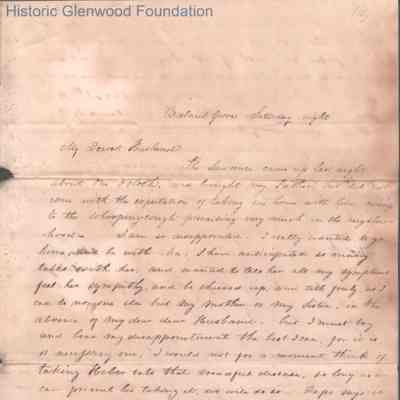 Historic Glenwood Foundation
Saturday night
My Dearest Husband
came up last night
about and brought my Father, but did not
come with the expectation of taking us home with him owing
to the whooping cough prevailing very much in the neighbor
hood. I am so disappointed. I really wanted to go
home and be with Ma; I have anticipated so many
talks with her, and wanted to tell her all my symptoms
feel her sympathy, and be cheered up, and talk freely as I
can to no one else but my Mother or my Sister, in the
absence of my dear dear Husband. but I must try
and bear my disappointment the best I can, for it is
a necessary one, I would not for a moment think of
taking Heber into that dreadful disease, so long as we
can prevent his taking it, we will do so. Papa says